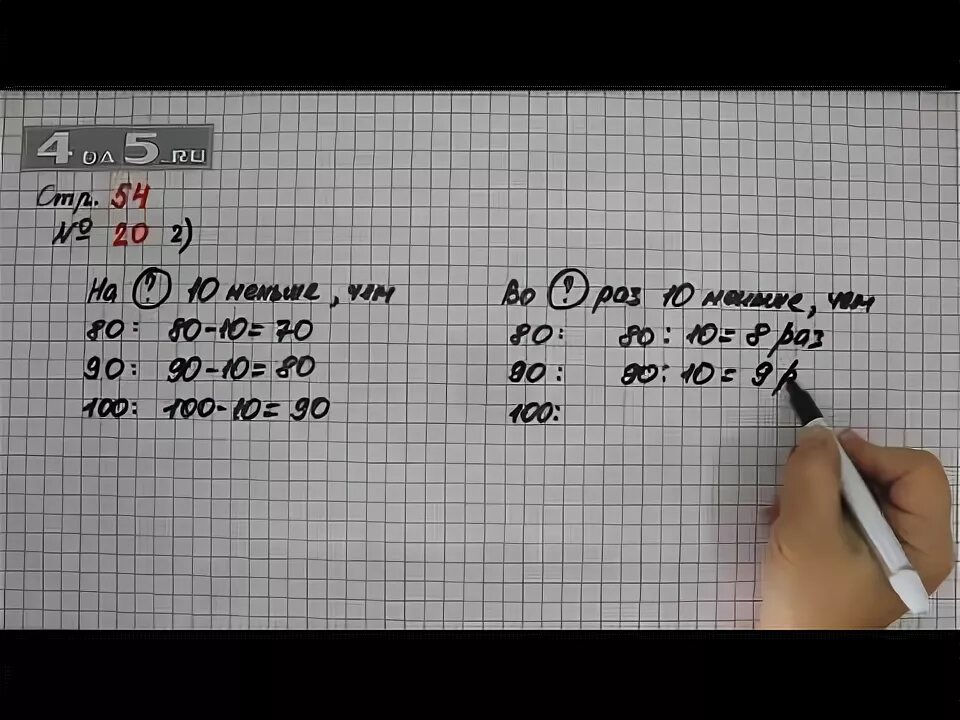 4 на 5.RU
Стр. 54
№ 20 2)
На ? 10 меньше, чем
80: 80-10=70
90: 90-10=80
100: 100-10=90
Во ? раз 10 меньше, чем
80: 80:10=8 раз
90: 90:10=9 р
100: